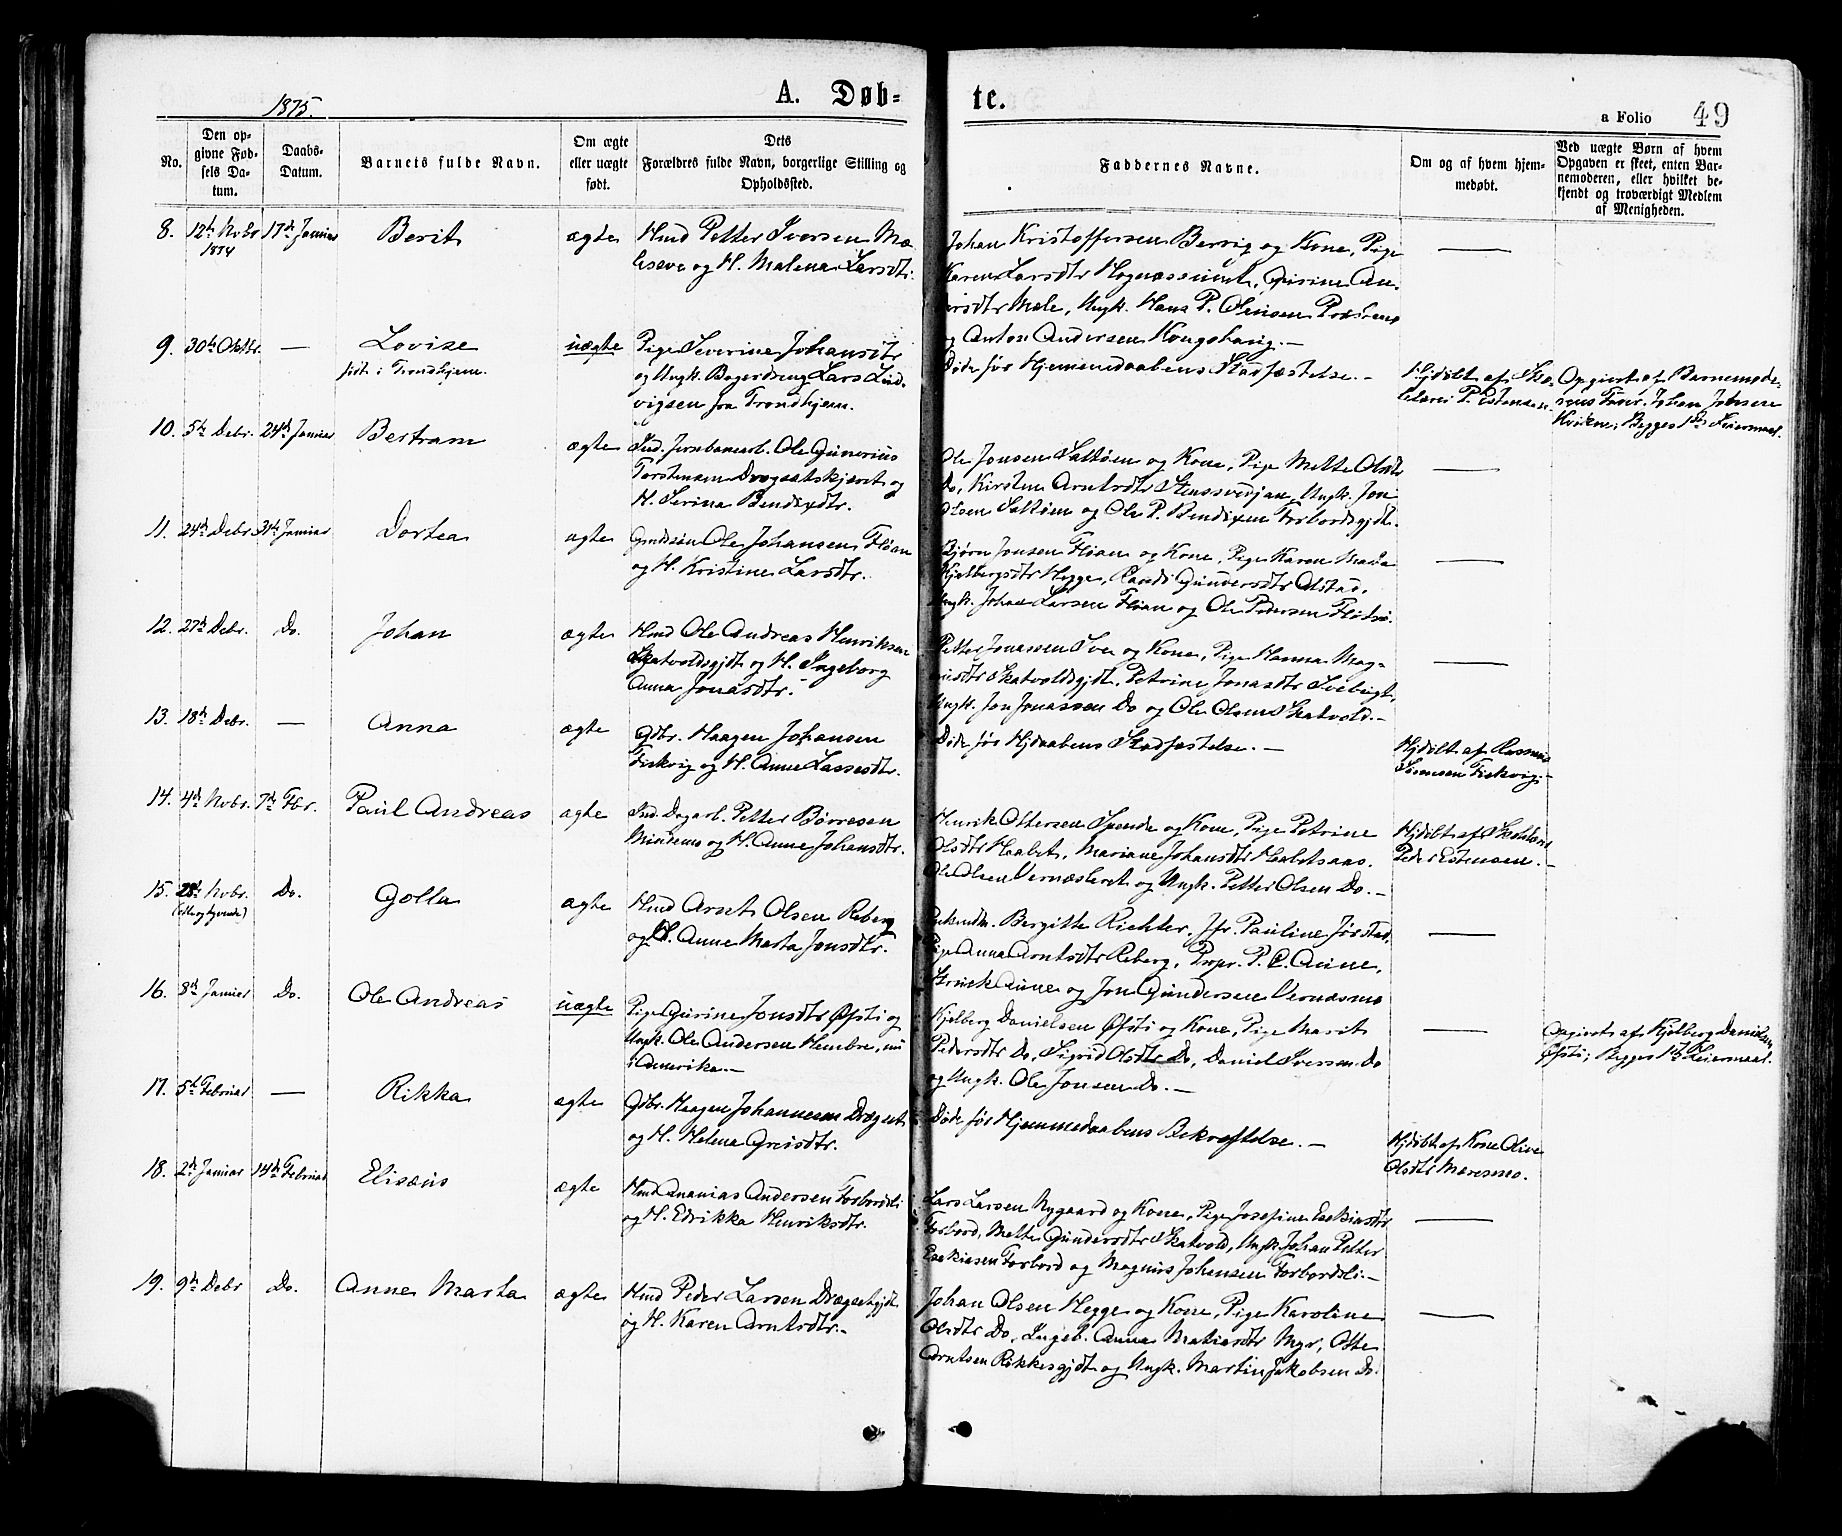 1875.
A. Døb=
te.
a Folio 49
No.
Den op-
givne Fød-
sels Da-
tum.
Daabs-
Datum.
Barnets fulde Navn.
Om ægte
eller uægte
født.
Dets
Forældres fulde Navn, borgerlige Stilling og
Opholdssted.
Faddernes Navne.
Om og af hvem hjem-
medøbt.
Ved uægte Børn af hvem
Opgaven er skeet, enten Bar-
nemoderen, eller hvilket be-
kjendt og troværdigt Medlem
af Menigheden.
8. 12te Novbr 1874 17de Januar Berit ægte
Hmd Petter Iversen Mæ-
og H. Malena Larsdtr.
Johan Kristoffersen Berrig og Kone, Pige
Karen Larsdtr
Mæle, Ungk. Hans P. Olensen
og Anton Andersen Kongshaug.—
9. 30te Oktbr. — Lovise uægte
født i Trondhjem.
Pige Severine Johansdtr
og Ungk. Bagerdreng Lars Lud-
vigsen fra Trondhjem.
Døde før Hjemmedaabens Stadfæstelse.—
Hjdøbt af
P. Estensen.
Opgivet af Barnemode-
rens Fader. Johan Johnsen
Begges 1ste Leiermaal.
10. 5te Debr. 24de Januar Bertram ægte
Ind. Jernbanearb. Ole Gunerius
Torstensen og
H. Serina Bendixdtr.
Ole Jonsen Saltøien og Kone, Pige Mette Olsdtr
Do, Kirsten Arntsdtr Ungk. Jon
Olsen Saltøien og Ole P. Bendixen Forbordsgjdt.
11. 24de Debr. 31te Januar Dortea ægte
Grdssøn Ole Johansen Fløan
og H. Kristine Larsdtr.
Bjørn Jonsen Fløan og Kone, Pige Karen Maria
Kjelbergsdtr Hegge, Randi Gunversdtr Olstad,
Ungk. Johan Larsen Fløan og Ole Pedersen
12. 27de Debr. Do. Johan ægte
Hmd Ole Andreas Henriksen
Skatvoldsgjdt og H. Ingeborg
Anna Jonasdtr.
Petter Jonassen Sve og Kone, Pige Hanna Mag-
nusdtr Skatvoldsgjdt, Petrine Jonasdtr
Ungk. Jon Jonassen Do og Ole Olsen Skatvold.—
13. 18de Debr. — Anna ægte
Gdbr. Haagen Johansen
Fiskvig og H. Anne Lassesdtr.
Døde før Hjdaabens Stadfæstelse.—
Hjdøbt af Rasmus
Sørensen Fiskvig.—
14. 4de Novbr. 7de Febr. Paul Andreas ægte
Ind. Dagarb. Petter Børresen
Mindemo og H. Anne Johansdtr.
Henrik Ottersen Spende og Kone, Pige Petrine
Olsdtr Haabet, Mariane Johansdtr Haabetsaas,
Ole Olsen Værnesleret og Ungk. Petter Olsen Do.—
Hjdøbt af
Peder Estensen.—
15. 28de Novbr. Do. Golla ægte
(otte og tyvende)
Hmd Arnt Olsen Reberg
og H. Anne Marta Jonsdtr.
Bergitte Richter, Jfr. Pauline Jørstad,
Pige Anna Arntsdtr Reberg, Propr. P. C. Aune,
Henrik Aune og Jon Gundersen Værnesmo
16. 8de Januar Do. Ole Andreas uægte
Pige Gurine Jonsdtr Øfsti og
Ungk. Ole Andersen Hembre, nu
i Amerika.—
Kjelberg Danielsen Øfsti og Kone, Pige Marit
Pedersdtr Do, Sigrid Olsdtr Do, Daniel Iversen Do
og Ungk. Ole Jonsen Do.—
Opgivet af Kjelberg Danielsen
Øfsti; Begges 1ste Leiermaal.
17. 5te Februar — Rikka ægte
Gdbr. Haagen Johannesen Drægset
og H. Helena
Døde før Hjemmedaabens Bekræftelse.—
Hjdøbt af Kone Olive
Olsdtr Mæresmo.
18. 2de Januar 14de Februar Elisæus ægte
Hmd Ananias Andersen Forbordsli
og H. Edrikka Henriksdtr.
Lars Larsen Nygaard og Kone, Pige Josefine Esekiasdtr
Forbord, Mette Gundersdtr Skatvold, Ungk. Johan Petter
Esekiasen Forbord og Magnus Johansen Forbordsli.—
19. 9de Debr Do. Anne Marta ægte
Hmd Peder Larsen Drægsetgjdt
og H. Karen Arntsdtr.—
Johan Olsen Hegge og Kone, Pige Karoline
Olsdtr Do, Ingeb. Anna Matiasdtr Myr, Otte
Arntsen Rikkesgjdt og Ungk. Martin Jakobsen Do.